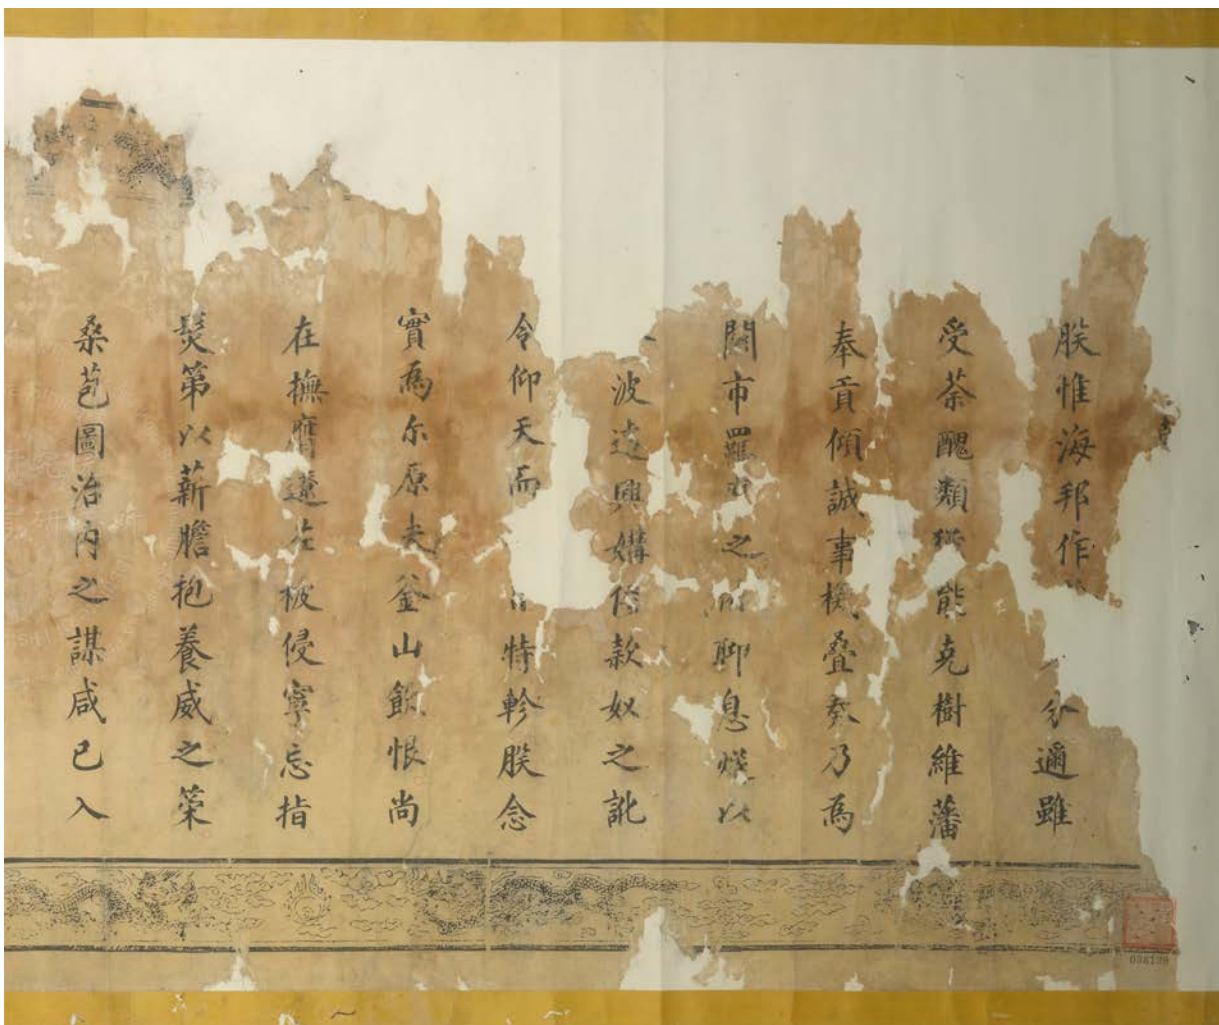 朕惟海邦作分邇雖
受荼醜類能克樹維藩
奉貢傾誠事機疊發乃為
關市之聊息燧以
波遠興媾信款奴之訛
令仰天而特軫朕念
實為尔原夫釜山餘恨尚
在撫膺遼左被侵寧忘指
髮第以薪膽抱養威之榮
桑苞圖治內之謀咸已入
038138